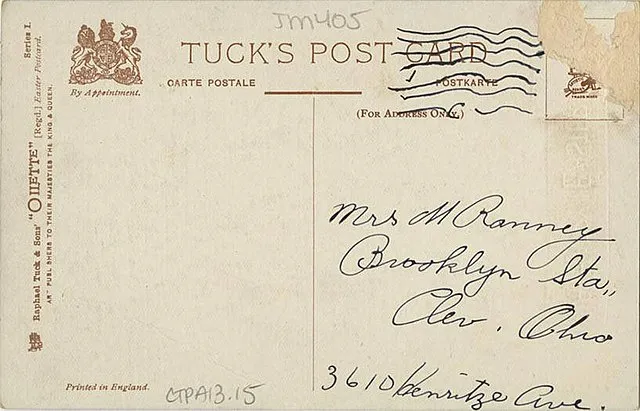 JM405
TUCK'S POST CARD
CARTE POSTALE
POSTKARTE
(FOR ADDRESS ONLY.)
By Appointment.
Raphael Tuck & Sons' "OILETTE" [Regd.] Easter Postcard. Series I.
ART PUBLISHERS TO THEIR MAJESTIES THE KING & QUEEN.
TRADE MARK
Mrs M Ranney
Brooklyn Sta.,
Clev. Ohio
3610 Ave.
Printed in England.
CTPA13.15